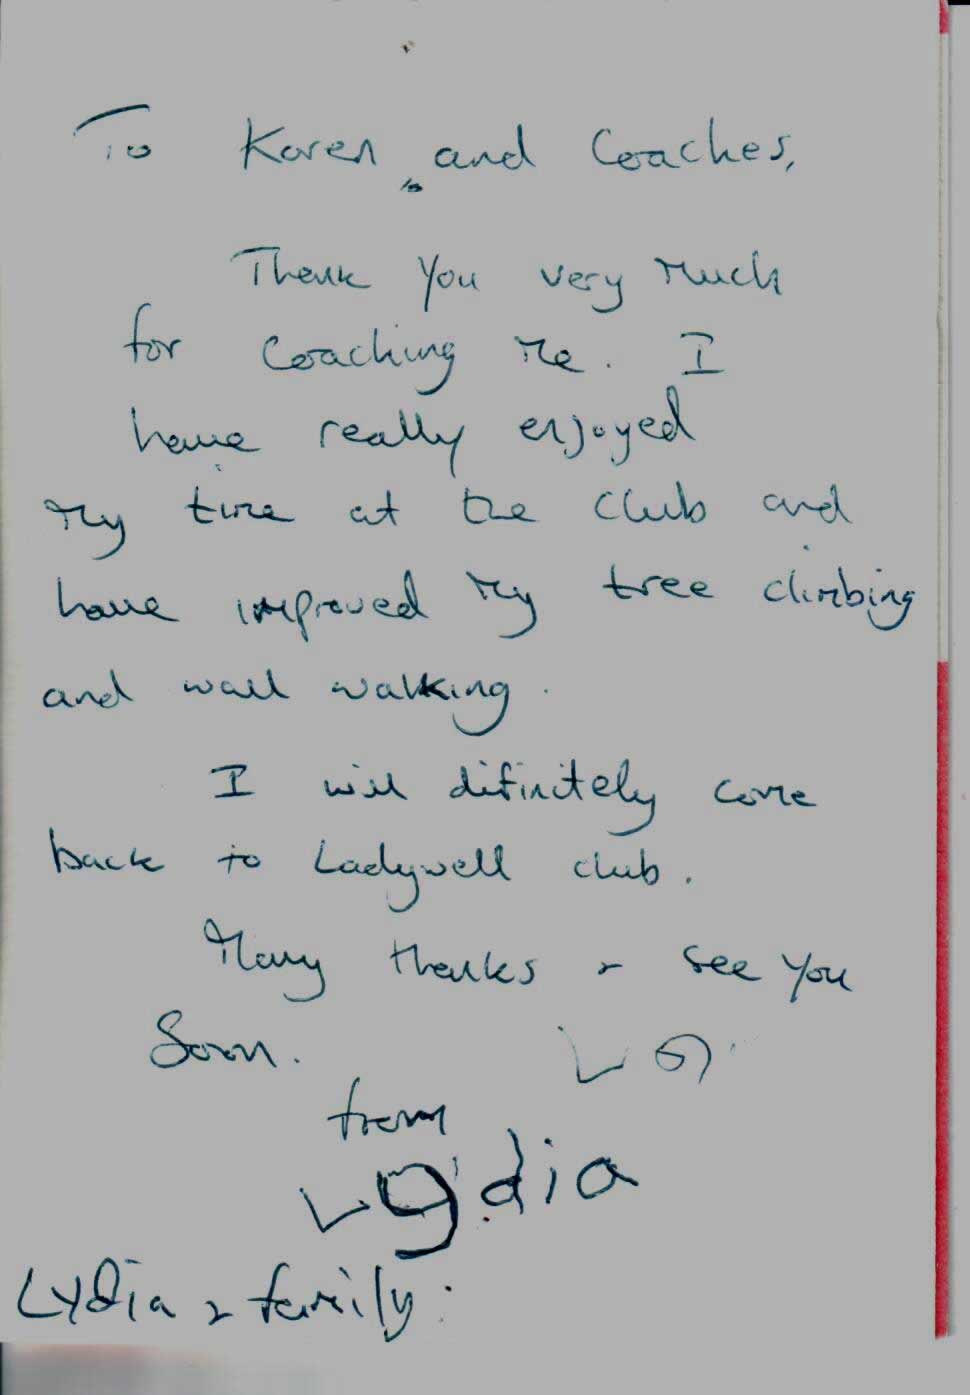 To Karen and Coaches,
Thank you very much
for coaching me. I
have really enjoyed
my time at the club and
have improved my tree climbing
and wall walking.
I will difinitely come
back to Ladywell club.
Many thanks & see you
Soon.
from
Lydia
Lydia & family.